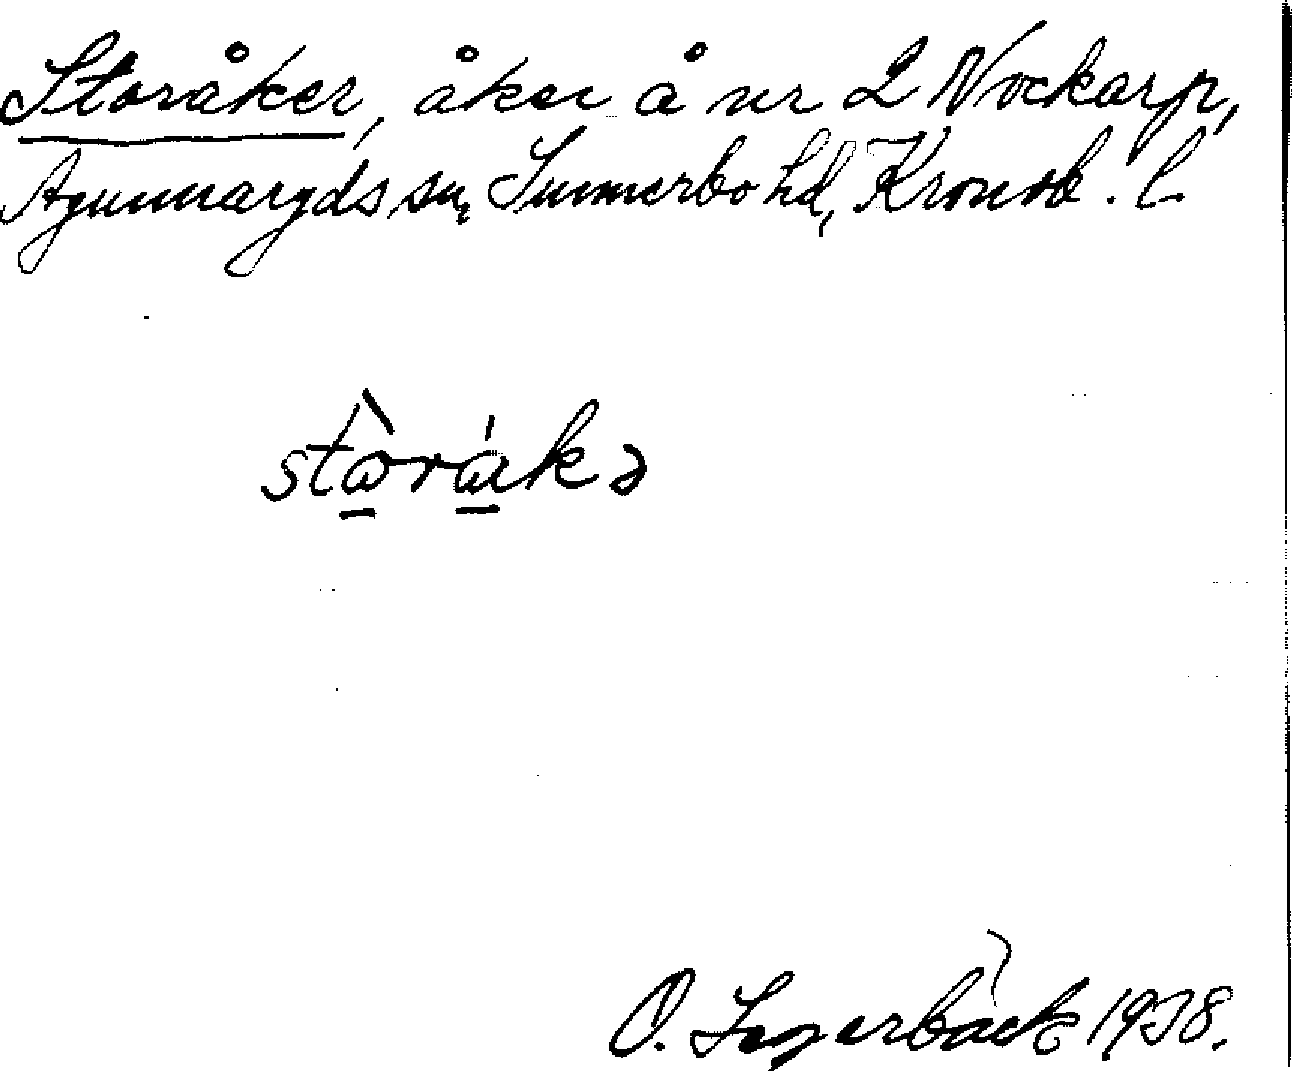 Storåker, åker å nr 2 Nockarp,
Agunnaryds sn, Sunnerbo hd, Kronob. l
stωrωkə
O. Lagerbäck 1938.